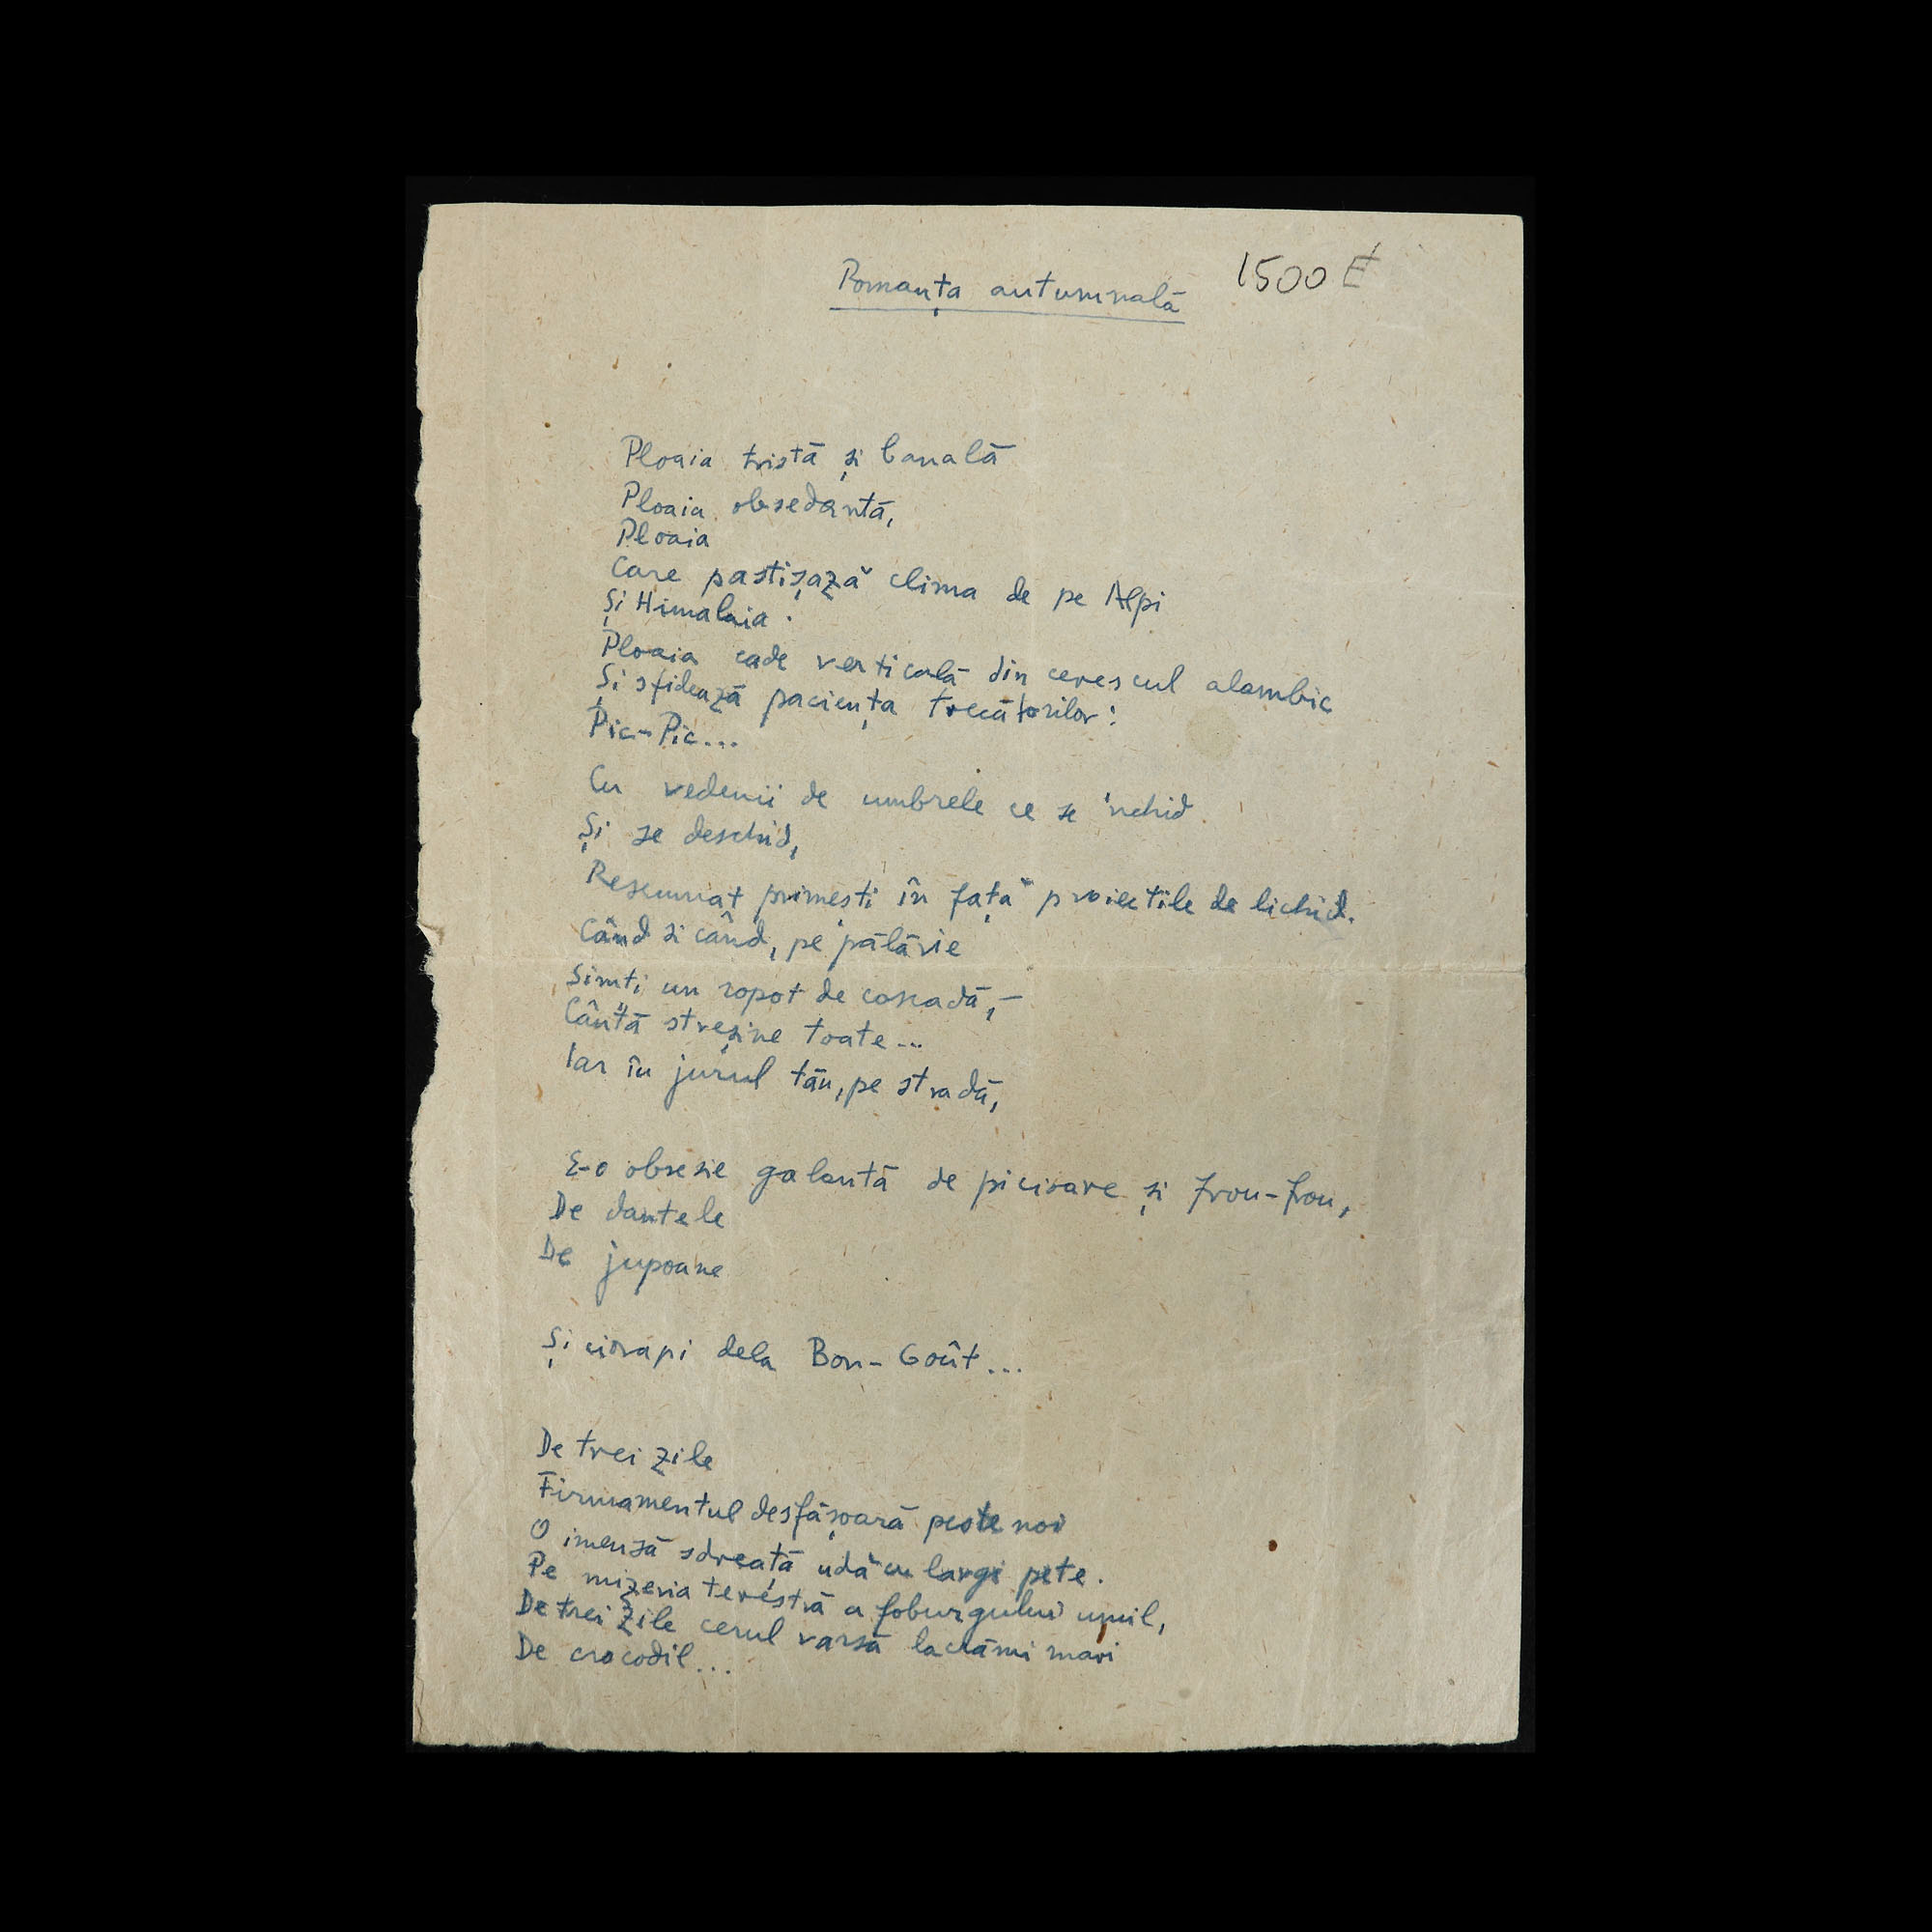 Romanța autumnală
1500 E
Ploaia tristă și banală
Ploaia obsedantă,
Ploaia
Care pastișază clima de pe Alpi
Și Himalaia.
Ploaia cade verticală din cerescul alambic
Și sfidează paciența trecătorilor:
Pic-Pic...
Cu vedenii de umbrele ce se 'nchid
Și se deschid,
Resemnat primești în față proiectile de lichid.
Când si când, pe pălărie
Simti un ropot de cascadă,—
Cântă streșine toate...
Iar în jurul tău, pe stradă,
E-o obsesie galantă de picioare și frou-frou,
De dantele
De jupoane
Și ciorapi dela Bon-Goût...
De trei zile
Firmamentul desfășoară peste noi
O imensă sdreață udă cu largi pete.
Pe mizeria terestră a foburgului umil,
De trei zile cerul varsă lacrămi mari
De crocodil...